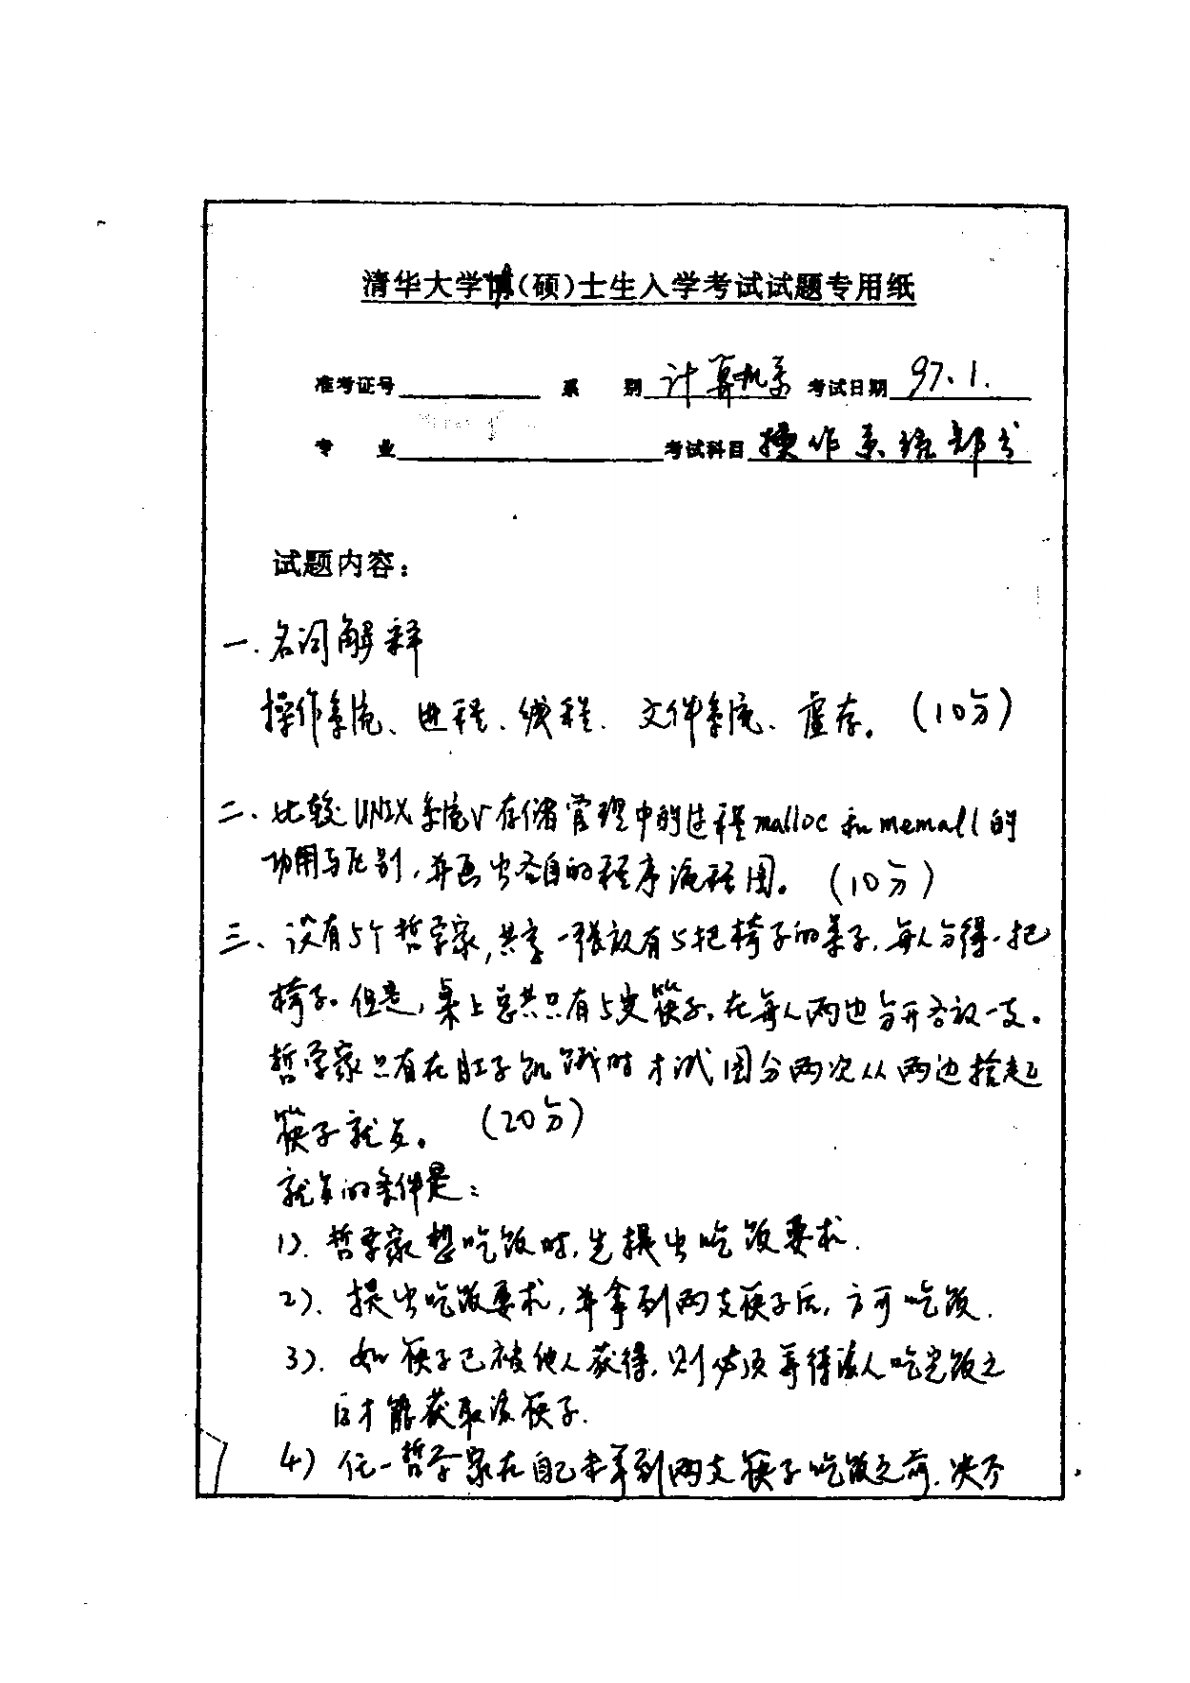 清华大学博(硕)士生入学考试试题专用纸
准考证号 系 别 计算机系 考试日期 97.1.
专 业 考试科目 操作系统部分
试题内容:
一.名词解释
操作系统、进程、线程、文件系统、虚存。(10分)
二、比较UNIX系统V存储管理中的过程malloc和memall的
功用与区别,并画出各自的程序流程图。(10分)
三、设有5个哲学家,共享一张放有5把椅子的桌子,每人分得一把
椅子。但是,桌上总共只有5支筷子,在每人两边分开各放一支。
哲学家只有在肚子饥饿时才试图分两次从两边拾起
筷子就餐。(20分)
就餐的条件是:
1).哲学家想吃饭时,先提出吃饭要求.
2).提出吃饭要求,并拿到两支筷子后,方可吃饭.
3).如筷子已被他人获得,则必须等待该人吃完饭之
后才能获取该筷子.
4)任一哲学家在自己未拿到两支筷子吃饭之前,决不